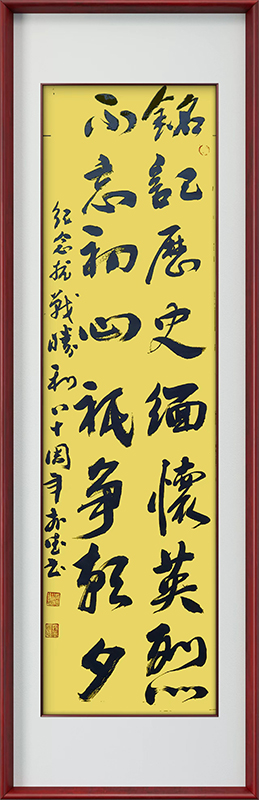 銘記歷史緬懷英烈
不忘初心祇争朝夕
紀念抗戰勝利八十周年书